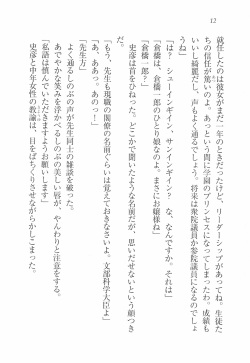 12
就任したのは彼女がまだ一年のときだったけど、リーダーシップがあってね。生徒た
ちの信任が篤いのよ。あっという間に学園のプリンセスになってしまったわ。成績も
いいし綺麗だし、声もよく通るでしょう。将来は衆院議員か参院議員になるのでしょ
うね」
「は？　シューインギイン、サンインギイン？　な、なんですか。それは」
「倉橋は、倉橋一郎のひとり娘なのよ。まさにお嬢様ね」
「倉橋一郎？」
史彦は首をひねった。どこかで聞いたような名前だが、思いだせないという顔つき
だ。
「もう、先生も現職の閣僚の名前ぐらいは覚えておきなさいよ。文部科学大臣よ」
「あ。あっ、あああのっ！」
「先生方」
よく通るしのぶの声が先生同士の雑談を破った。
あでやかな笑みを浮かべるしのぶの美しい唇が、やんわりと注意をする。
「私語は慎んでいただきますようお願いします」
史彦と中年女性の教諭は、目をぱちくりさせながらかしこまった。